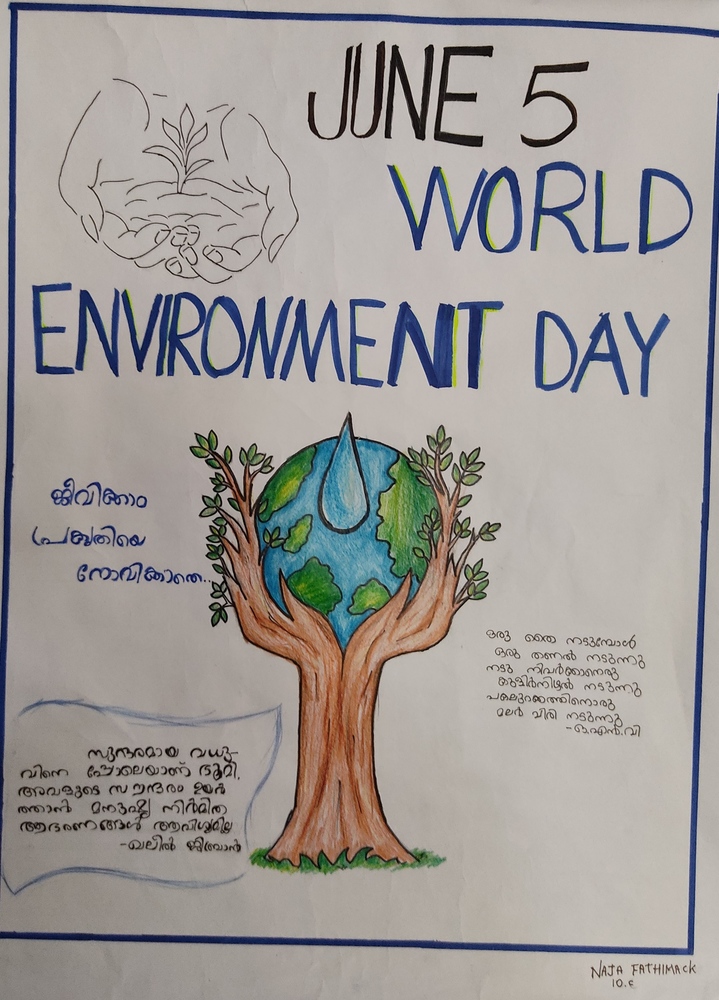 JUNE 5
WORLD
ENVIRONMENT DAY
ജീവിക്കാം
പ്രകൃതിയെ
നോവിക്കാതെ..
ഒരു തൈ നടുമ്പോൾ
ഒരു തണൽ നടുന്നു
നടു നിവർക്കാനൊരു
കുളിർനിഴൽ നടുന്നു
പകലുറക്കത്തിനൊരു
മലർ വിരി നടുന്നു
-ഒ.എൻ.വി
സുന്ദരമായ വധു-
വിനെ പ്പോലെയാണ് ഭൂമി.
അവളുടെ സൗന്ദര്യം
ത്താൻ മനുഷ്യ നിർമിത
ആഭരണങ്ങൾ ആവിശ്യമില്ല
-ഖലീൽ ജിബ്രാൻ
NAJA FATHIMACK
10.E